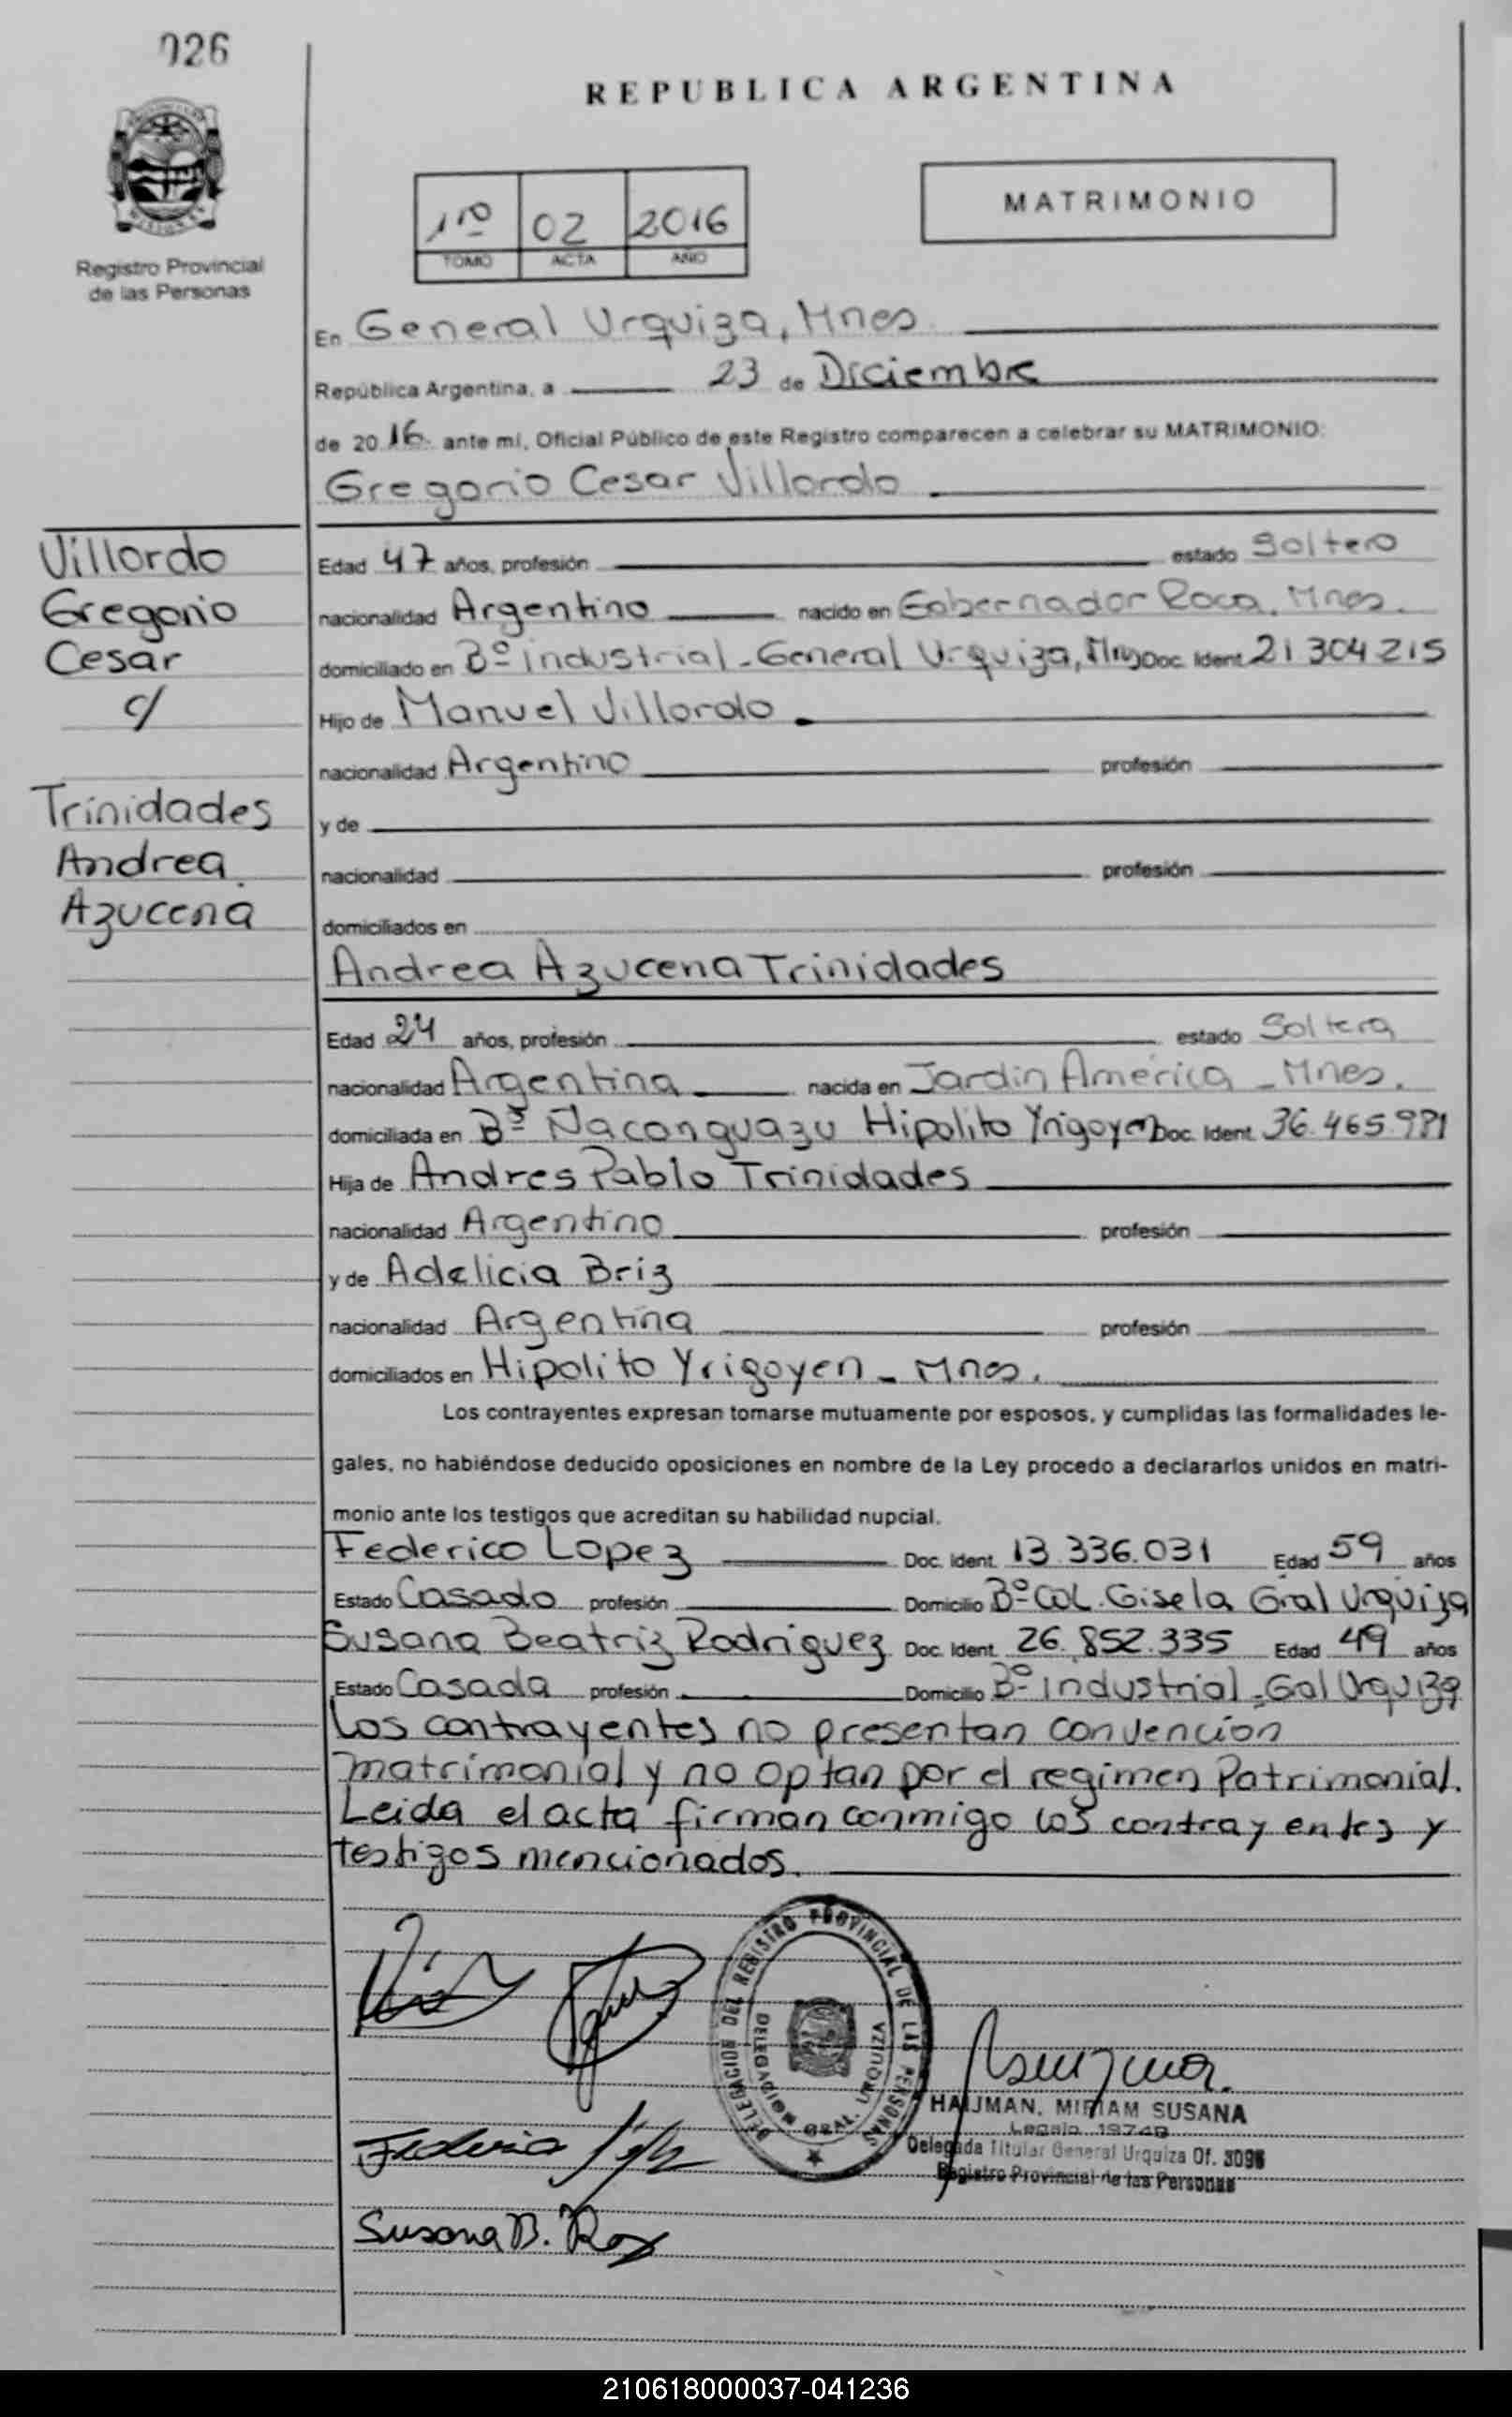 026
REPUBLICA ARGENTINA
Registro Provincial
de las Personas
1ro 02 2016
TOMO ACTA AÑO
MATRIMONIO
En General Urquiza, Mnes.
República Argentina, a 23 de Diciembre
de 2016. ante mi, Oficial Público de este Registro comparecen a celebrar su MATRIMONIO:
Gregorio Cesar Villordo
Villordo
Gregorio
Cesar
c/
Trinidades
Andrea
Azucena
Edad 47 años, profesión estado Soltero
nacionalidad Argentino nacido en Gobernador Roca. Mnes.
domiciliado en Bº Industrial - General Urquiza, Mnes Doc. Ident. 21 304 215
Hijo de Manuel Villordo
nacionalidad Argentino profesión
y de
nacionalidad profesión
domiciliados en
Andrea Azucena Trinidades
Edad 24 años, profesión estado Soltera
nacionalidad Argentina nacida en Jardin America - Mnes.
domiciliada en Bº Ñacanguazu Hipolito Yrigoyen Doc. Ident. 36.465.981
Hija de Andres Pablo Trinidades
nacionalidad Argentino profesión
y de Adelicia Briz
nacionalidad Argentina profesión
domiciliados en Hipolito Yrigoyen - Mnes.
Los contrayentes expresan tomarse mutuamente por esposos, y cumplidas las formalidades le-
gales, no habiéndose deducido oposiciones en nombre de la Ley procedo a declararlos unidos en matri-
monio ante los testigos que acreditan su habilidad nupcial.
Federico Lopez Doc. Ident. 13.336.031 Edad 59 años
Estado Casado profesión Domicilio Bº Col. Gisela Gral Urquiza
Susana Beatriz Rodriguez Doc. Ident. 26.852.335 Edad 49 años
Estado Casada profesión Domicilio Bº Industrial - Gal Urquiza
Los contrayentes no presentan convencion
matrimonial y no optan por el regimen Patrimonial.
Leida el acta firman conmigo los contrayentes y
testigos mencionados.
DELEGACION DEL REGISTRO PROVINCIAL DE LAS PERSONAS
GRAL. URQUIZA
HAIJMAN, MIRIAM SUSANA
Legajo
Delegada Titular General Urquiza Of. 3096
Registro Provincial de las Personas
Susana B. Roz
210618000037-041236